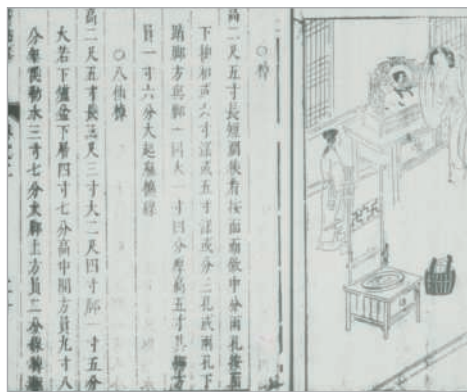 ○棹
高二尺五寸長短闊狹看按面而做中分兩孔按面
下抽箱或六寸深或五寸深或分三孔或兩孔下
踏脚方與脚一同大一寸四分厚高五寸其脚方
員一寸六分大起麻線
○八仙棹
高二尺五寸長三尺三寸大二尺四寸脚一寸五分
大若下爐盆下層四寸七分高中間方員九寸八
分無誤勒水三寸七分大脚上方員二分線